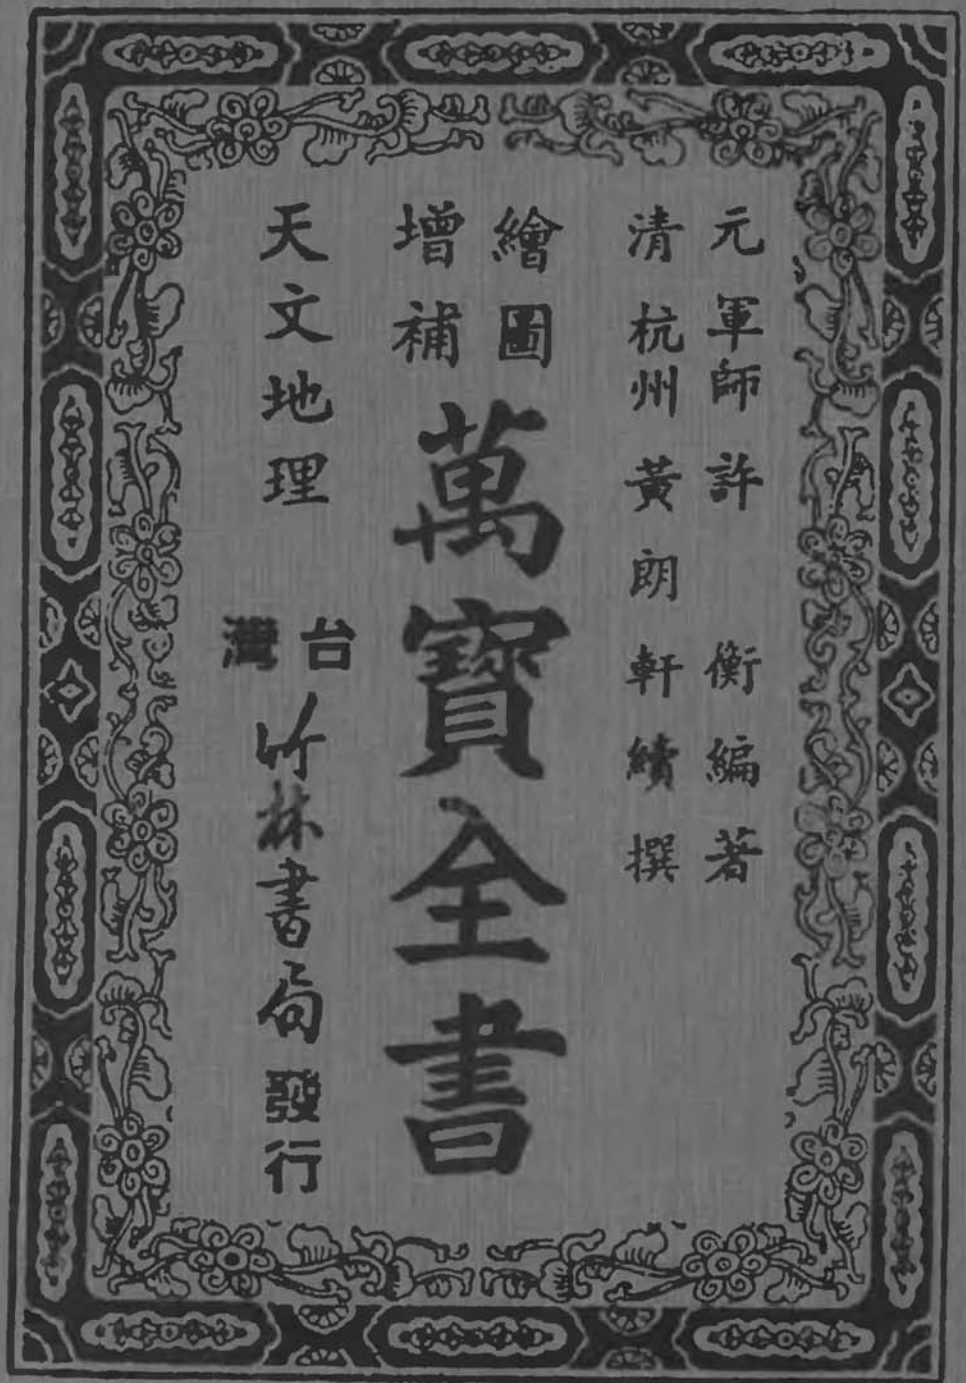 元軍師許衡編著
清杭州黃朗軒續撰
繪圖
增補
萬寶全書
天文地理
台灣
竹林書局發行